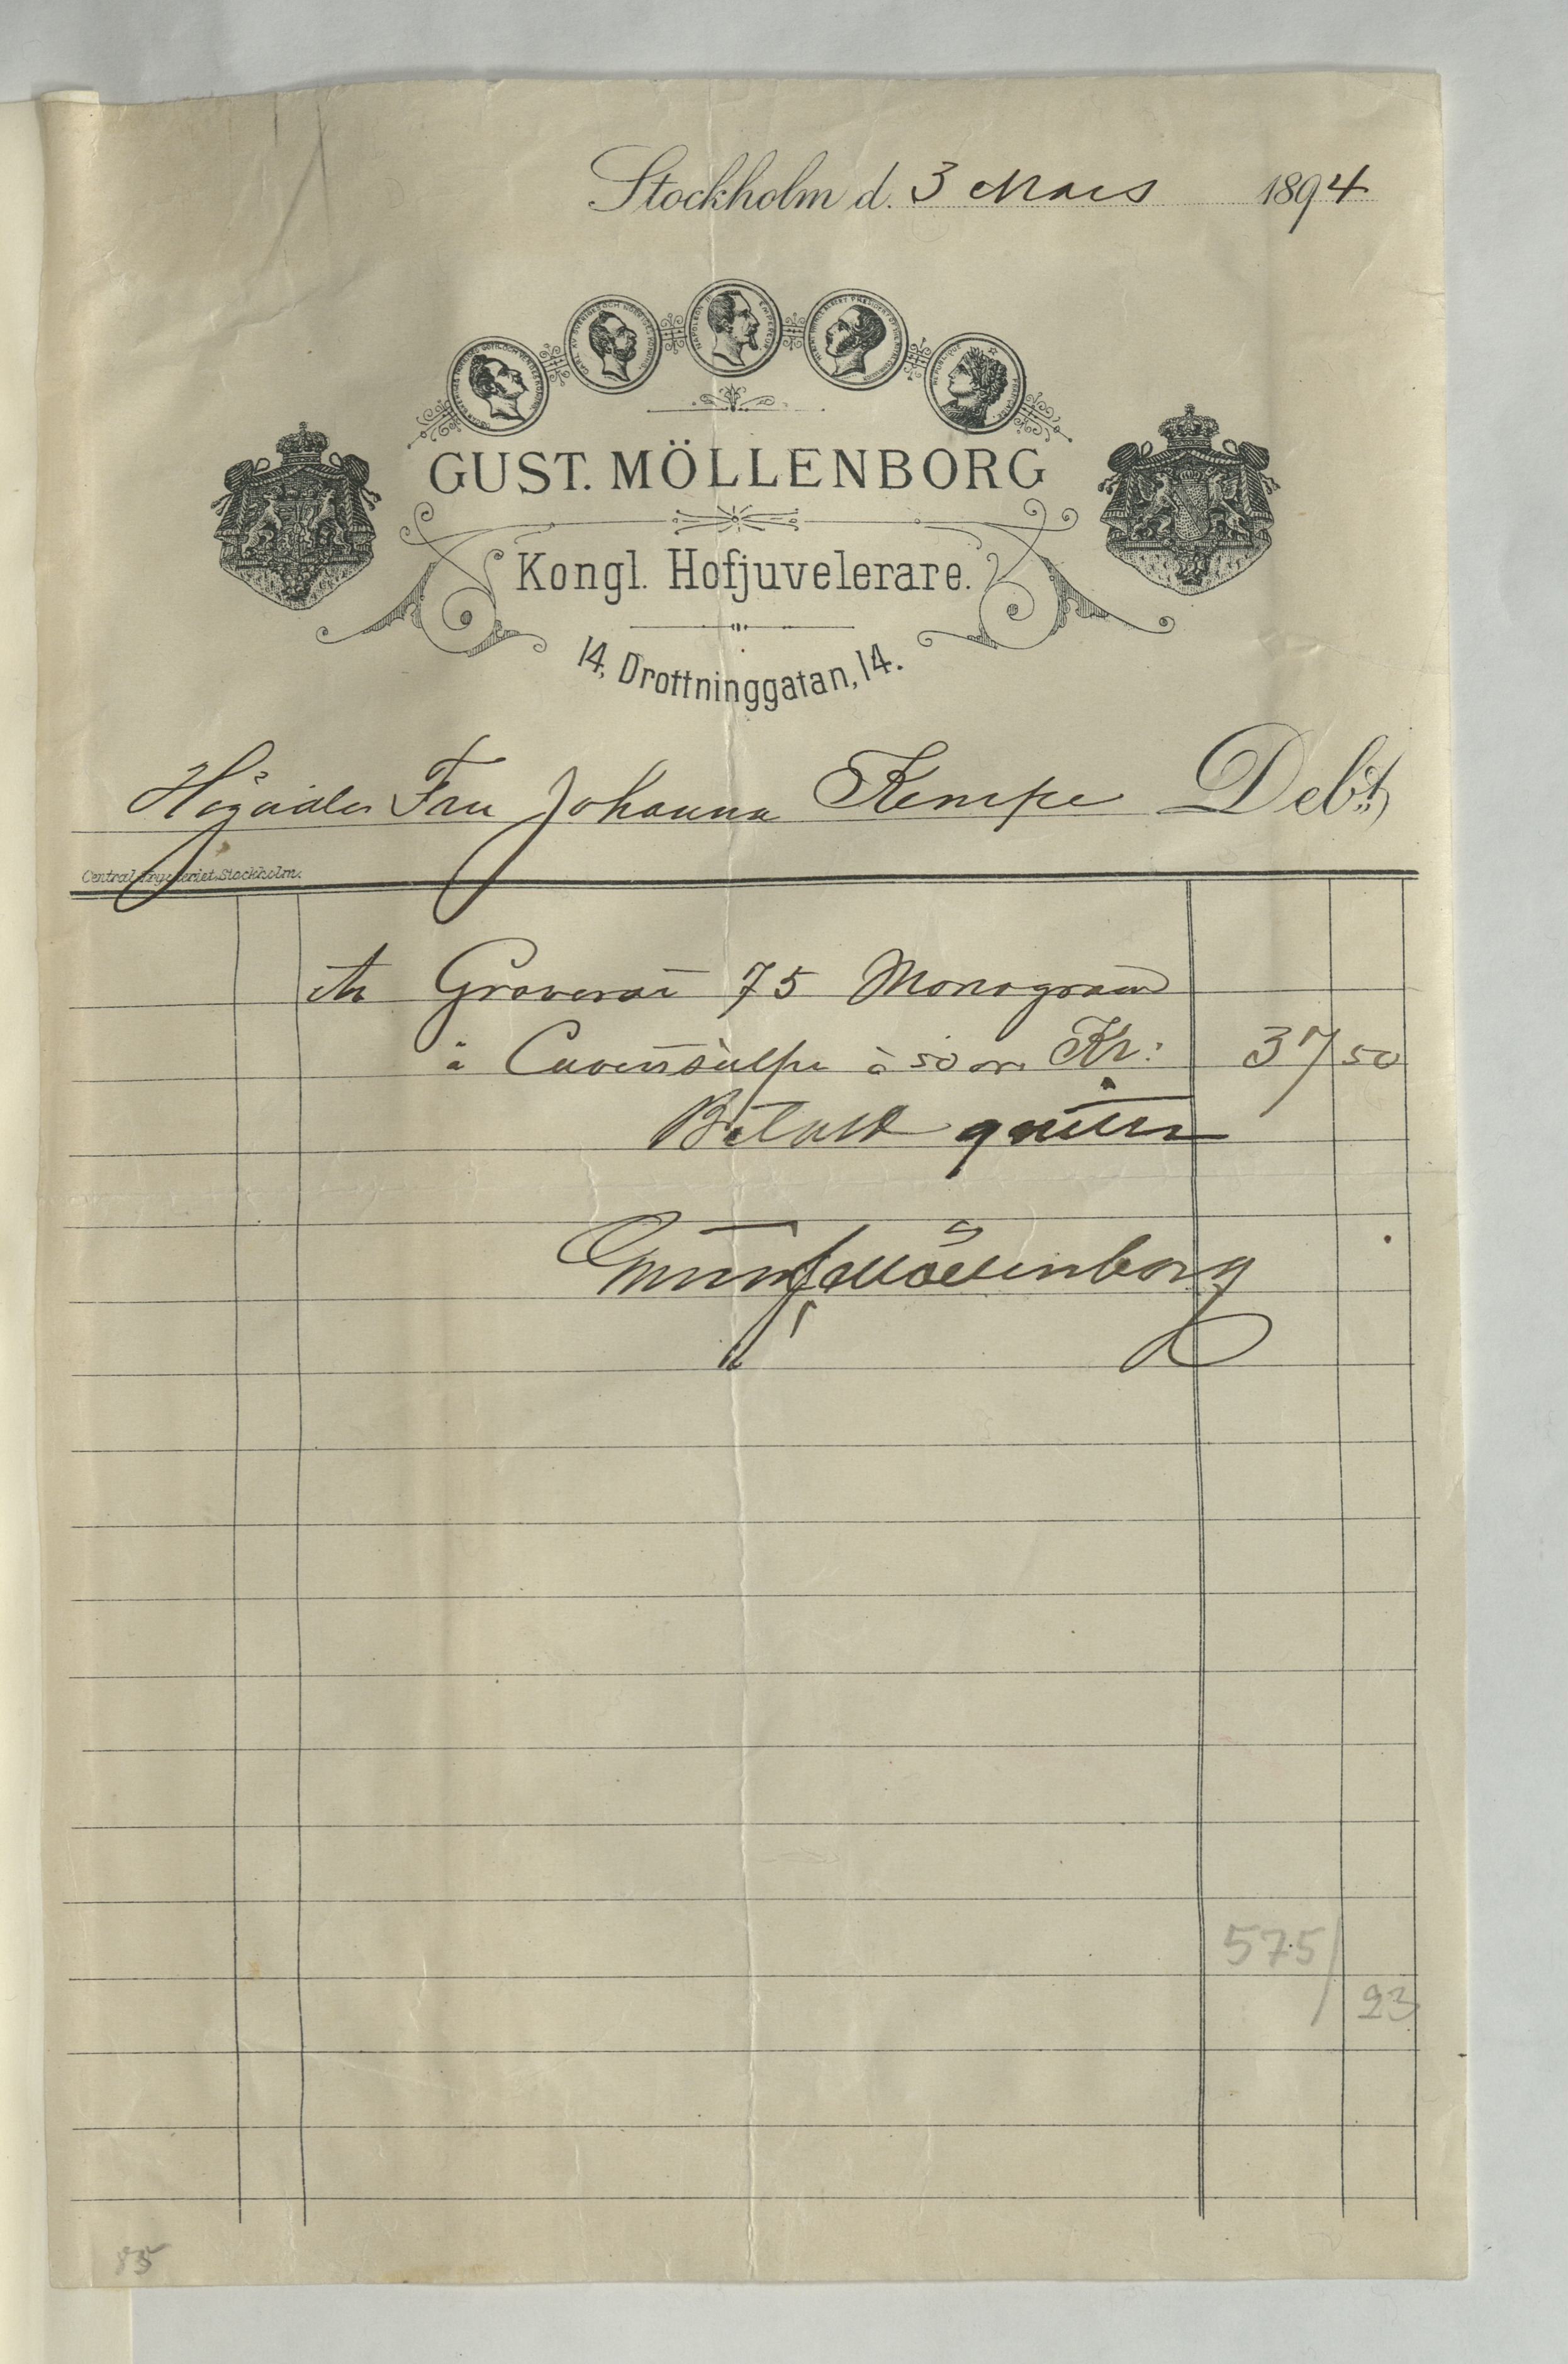 Stockholm d. 3 Mars 1894
GUST. MÖLLENBORG
Kongl. Hofjuvelerare.
14, Drottninggatan, 14.
Högädla Fru Johanna Kempe Debt,
Central-Tryckeriet, Stockholm.
Graverat 75 Monogram
à 50 öre Kr: 37 50
Betalt qvitteras
Gustaf Möllenborg
575/
23
85